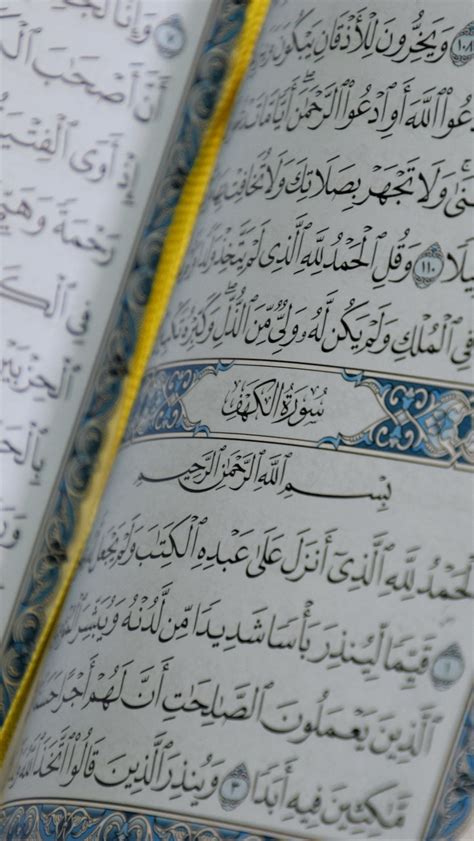 ١٠٨ وَيَخِرُّونَ لِلْأَذْقَانِ يَبْكُونَ
ٱللَّهَ أَوِ ٱدْعُوا۟ ٱلرَّحْمَٰنَ أَيًّا مَّا
وَلَا تَجْهَرْ بِصَلَاتِكَ وَلَا تُخَافِتْ بِهَا
يلًا ١١٠ وَقُلِ ٱلْحَمْدُ لِلَّهِ ٱلَّذِى لَمْ يَتَّخِذْ
فِى ٱلْمُلْكِ وَلَمْ يَكُن لَّهُۥ وَلِىٌّ مِّنَ ٱلذُّلِّ وَكَبِّرْهُ
سُورَةُ الكَهْفِ
بِسْمِ ٱللَّهِ ٱلرَّحْمَٰنِ ٱلرَّحِيمِ
ٱلْحَمْدُ لِلَّهِ ٱلَّذِىٓ أَنزَلَ عَلَىٰ عَبْدِهِ ٱلْكِتَٰبَ وَلَمْ يَجْعَل
١ قَيِّمًا لِّيُنذِرَ بَأْسًا شَدِيدًا مِّن لَّدُنْهُ وَيُبَشِّرَ
ٱلَّذِينَ يَعْمَلُونَ ٱلصَّٰلِحَٰتِ أَنَّ لَهُمْ أَجْرًا حَسَنًا
مَّٰكِثِينَ فِيهِ أَبَدًا ٣ وَيُنذِرَ ٱلَّذِينَ قَالُوا۟ ٱتَّخَذَ ٱللَّهُ
وَإِنَّا
٧
أَنَّ أَصْحَٰبَ
أَوَى ٱلْفِتْيَ
رَحْمَةً
فِى
ٱلْحِزْبَيْ